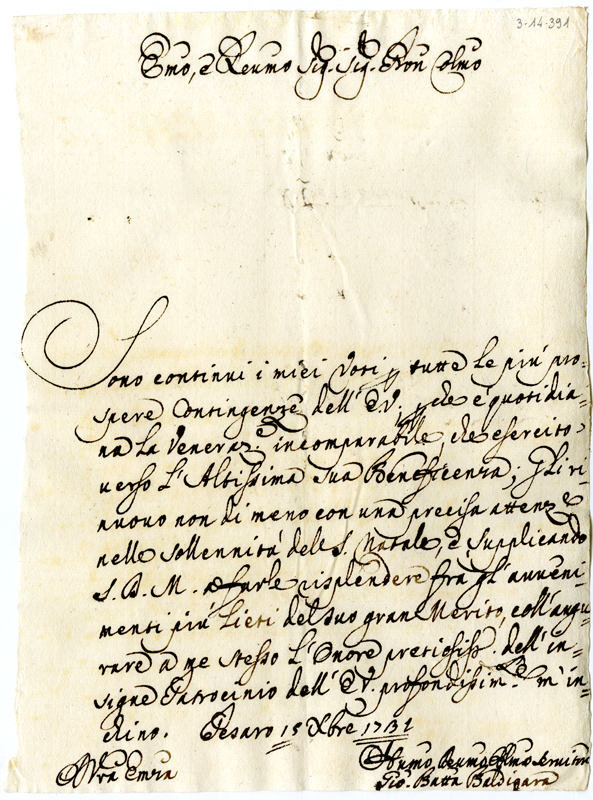 3-14-391
Emo, e Reumo Sig. Sig. Pron Colmo
Sono continui i miei Voti p tutte le più pro-
spere Contingenze dell' E.V. p che è quotidia-
na la Veneraz.e incomparabile che esercito
verso l'Altissima sua Beneficenza; Gli ri-
nuouo non di meno con una precisa attenz.e
nelle sollennità del S. Natale, e supplicando
S.D.M. a farle risplendere frà gl'auueni-
menti più lieti del suo gran Merito, coll'augu
rare a me stesso l'Onore pretiosiss. dell'in-
signe Patrocinio dell' E.V. profondissim.te m'in-
chino. Pesaro 15 Xbre 1731
Vra Emza
Humo Deumo Obmo Seruitore
Gio. Batta Baldigara